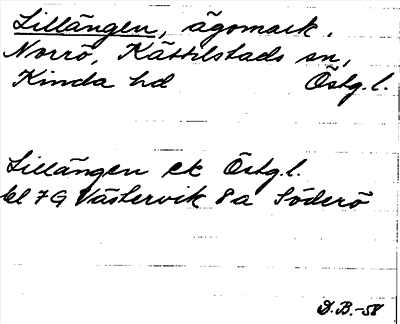 Lillängen, ägomark.
Norrö, Kättilstads sn,
Kinda hd Östg.l.
Lillängen ek Östg.l.
bl 7G Västervik 8a Söderö
D.B.-58